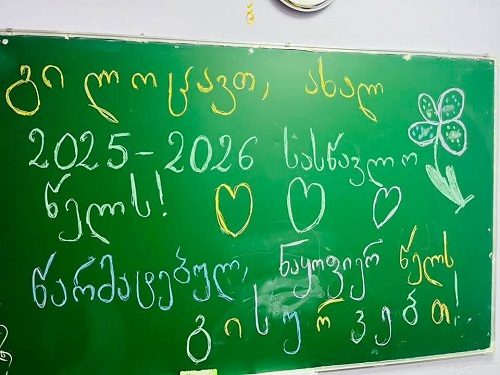 გილოცავთ, ახალ
2025-2026 სასწავლო
წელს!
წარმატებულ, ნაყოფიერ წელს
გისურვებთ!